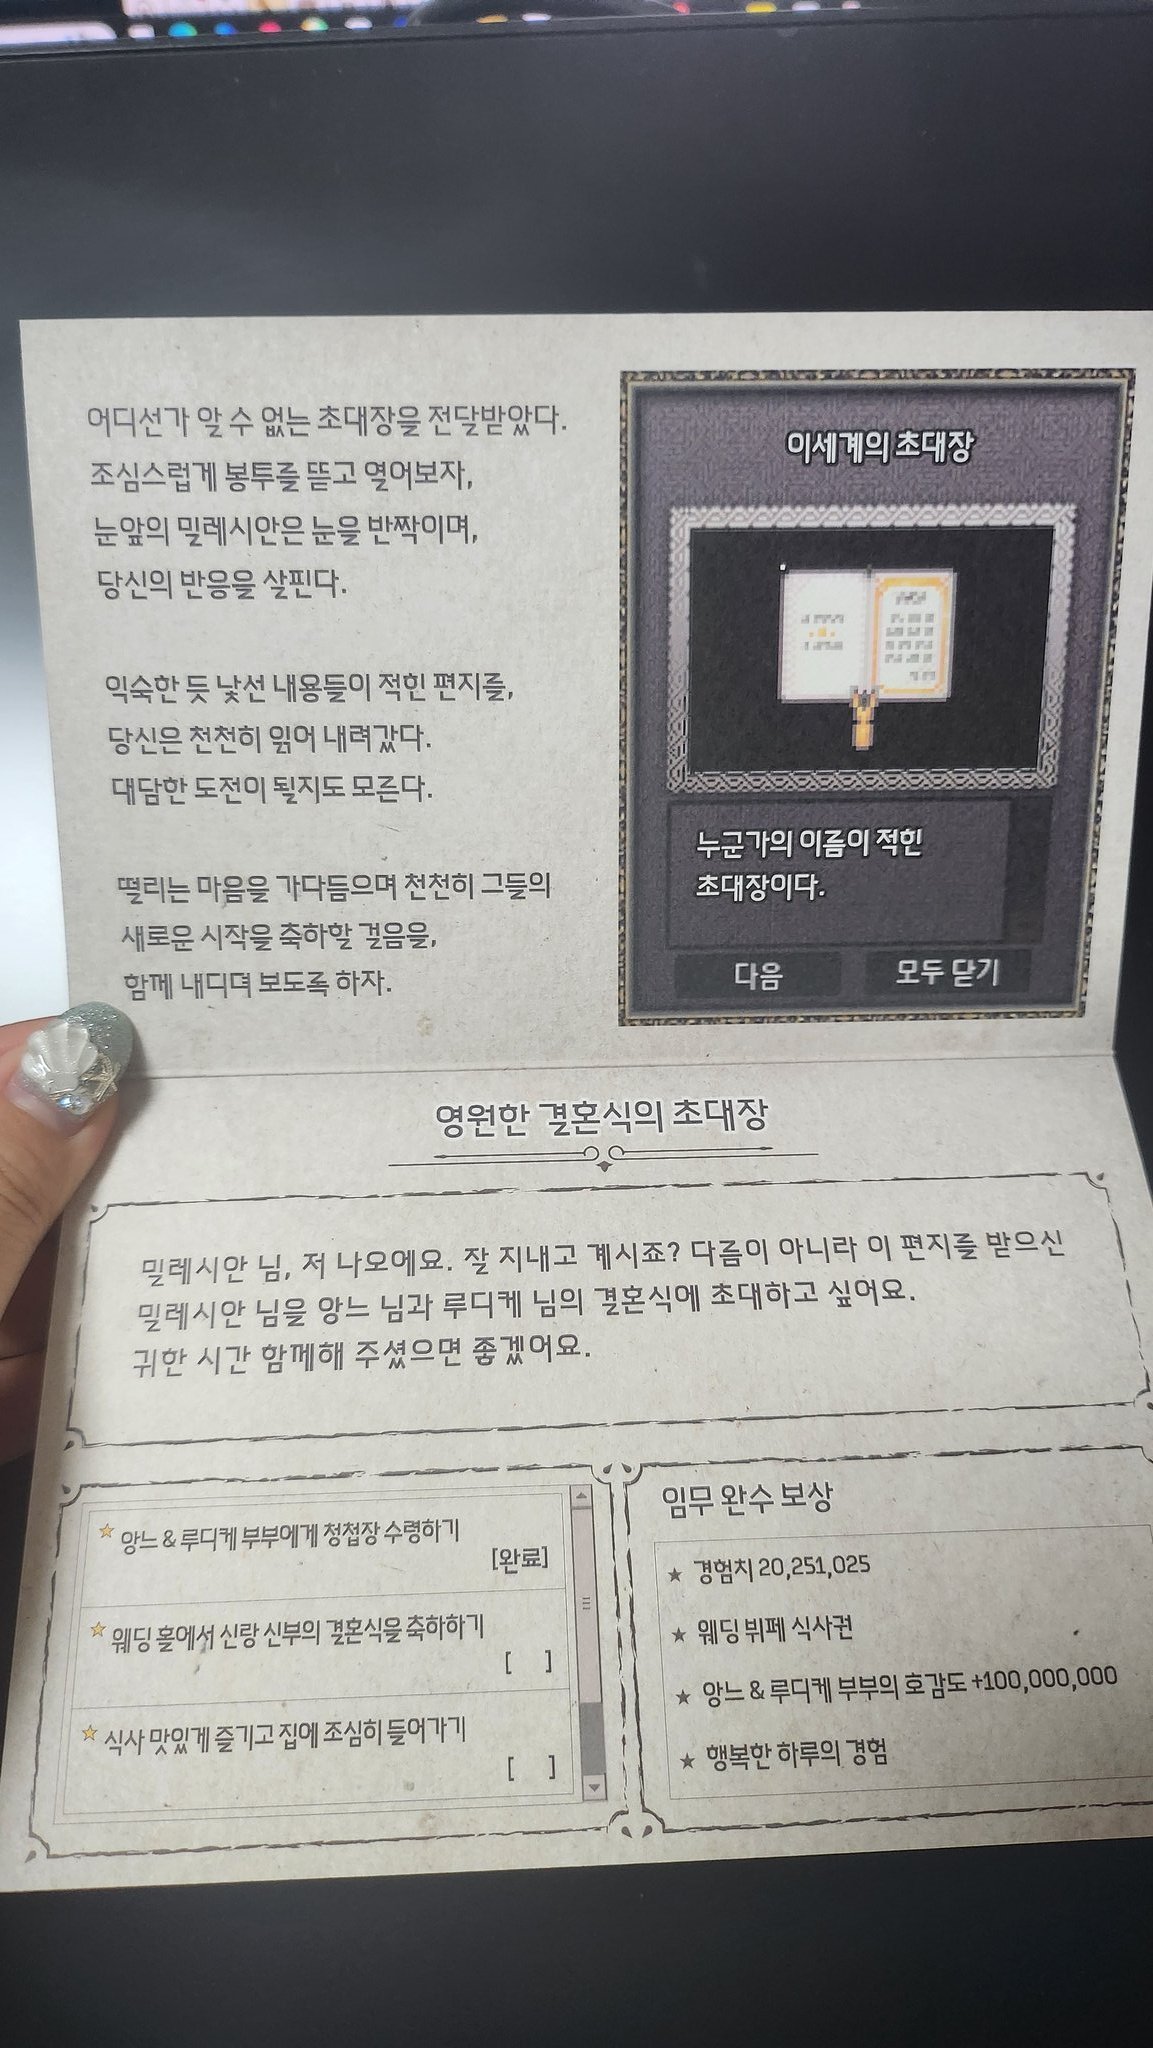 어디선가 알 수 없는 초대장을 전달받았다.
조심스럽게 봉투를 뜯고 열어보자,
눈앞의 밀레시안은 눈을 반짝이며,
당신의 반응을 살핀다.
익숙한 듯 낯선 내용들이 적힌 편지를,
당신은 천천히 읽어 내려갔다.
대담한 도전이 될지도 모른다.
떨리는 마음을 가다듬으며 천천히 그들의
새로운 시작을 축하할 걸음을,
함께 내디뎌 보도록 하자.
이세계의 초대장
누군가의 이름이 적힌
초대장이다.
다음
모두 닫기
영원한 결혼식의 초대장
밀레시안 님, 저 나오예요. 잘 지내고 계시죠? 다름이 아니라 이 편지를 받으신
밀레시안 님을 앙느 님과 루디케 님의 결혼식에 초대하고 싶어요.
귀한 시간 함께해 주셨으면 좋겠어요.
앙느 & 루디케 부부에게 청첩장 수령하기
[완료]
웨딩 홀에서 신랑 신부의 결혼식을 축하하기
[ ]
식사 맛있게 즐기고 집에 조심히 들어가기
[ ]
임무 완수 보상
★ 경험치 20,251,025
★ 웨딩 뷔페 식사권
★ 앙느 & 루디케 부부의 호감도 +100,000,000
★ 행복한 하루의 경험